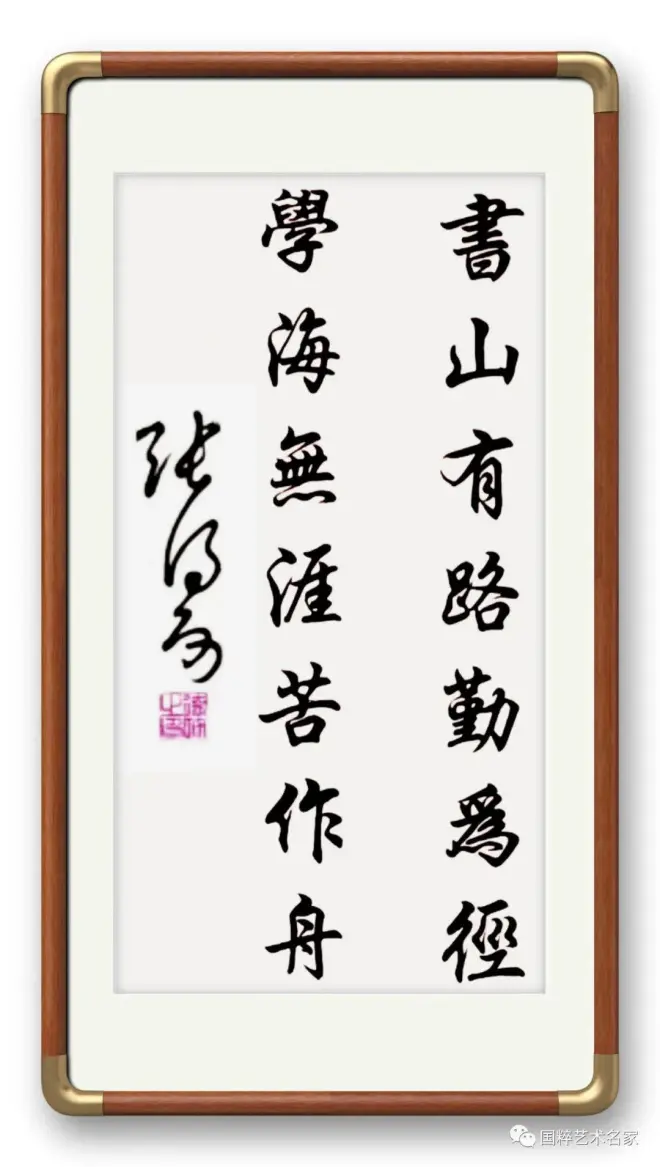 書山有路勤為徑
學海無涯苦作舟
国粹艺术名家